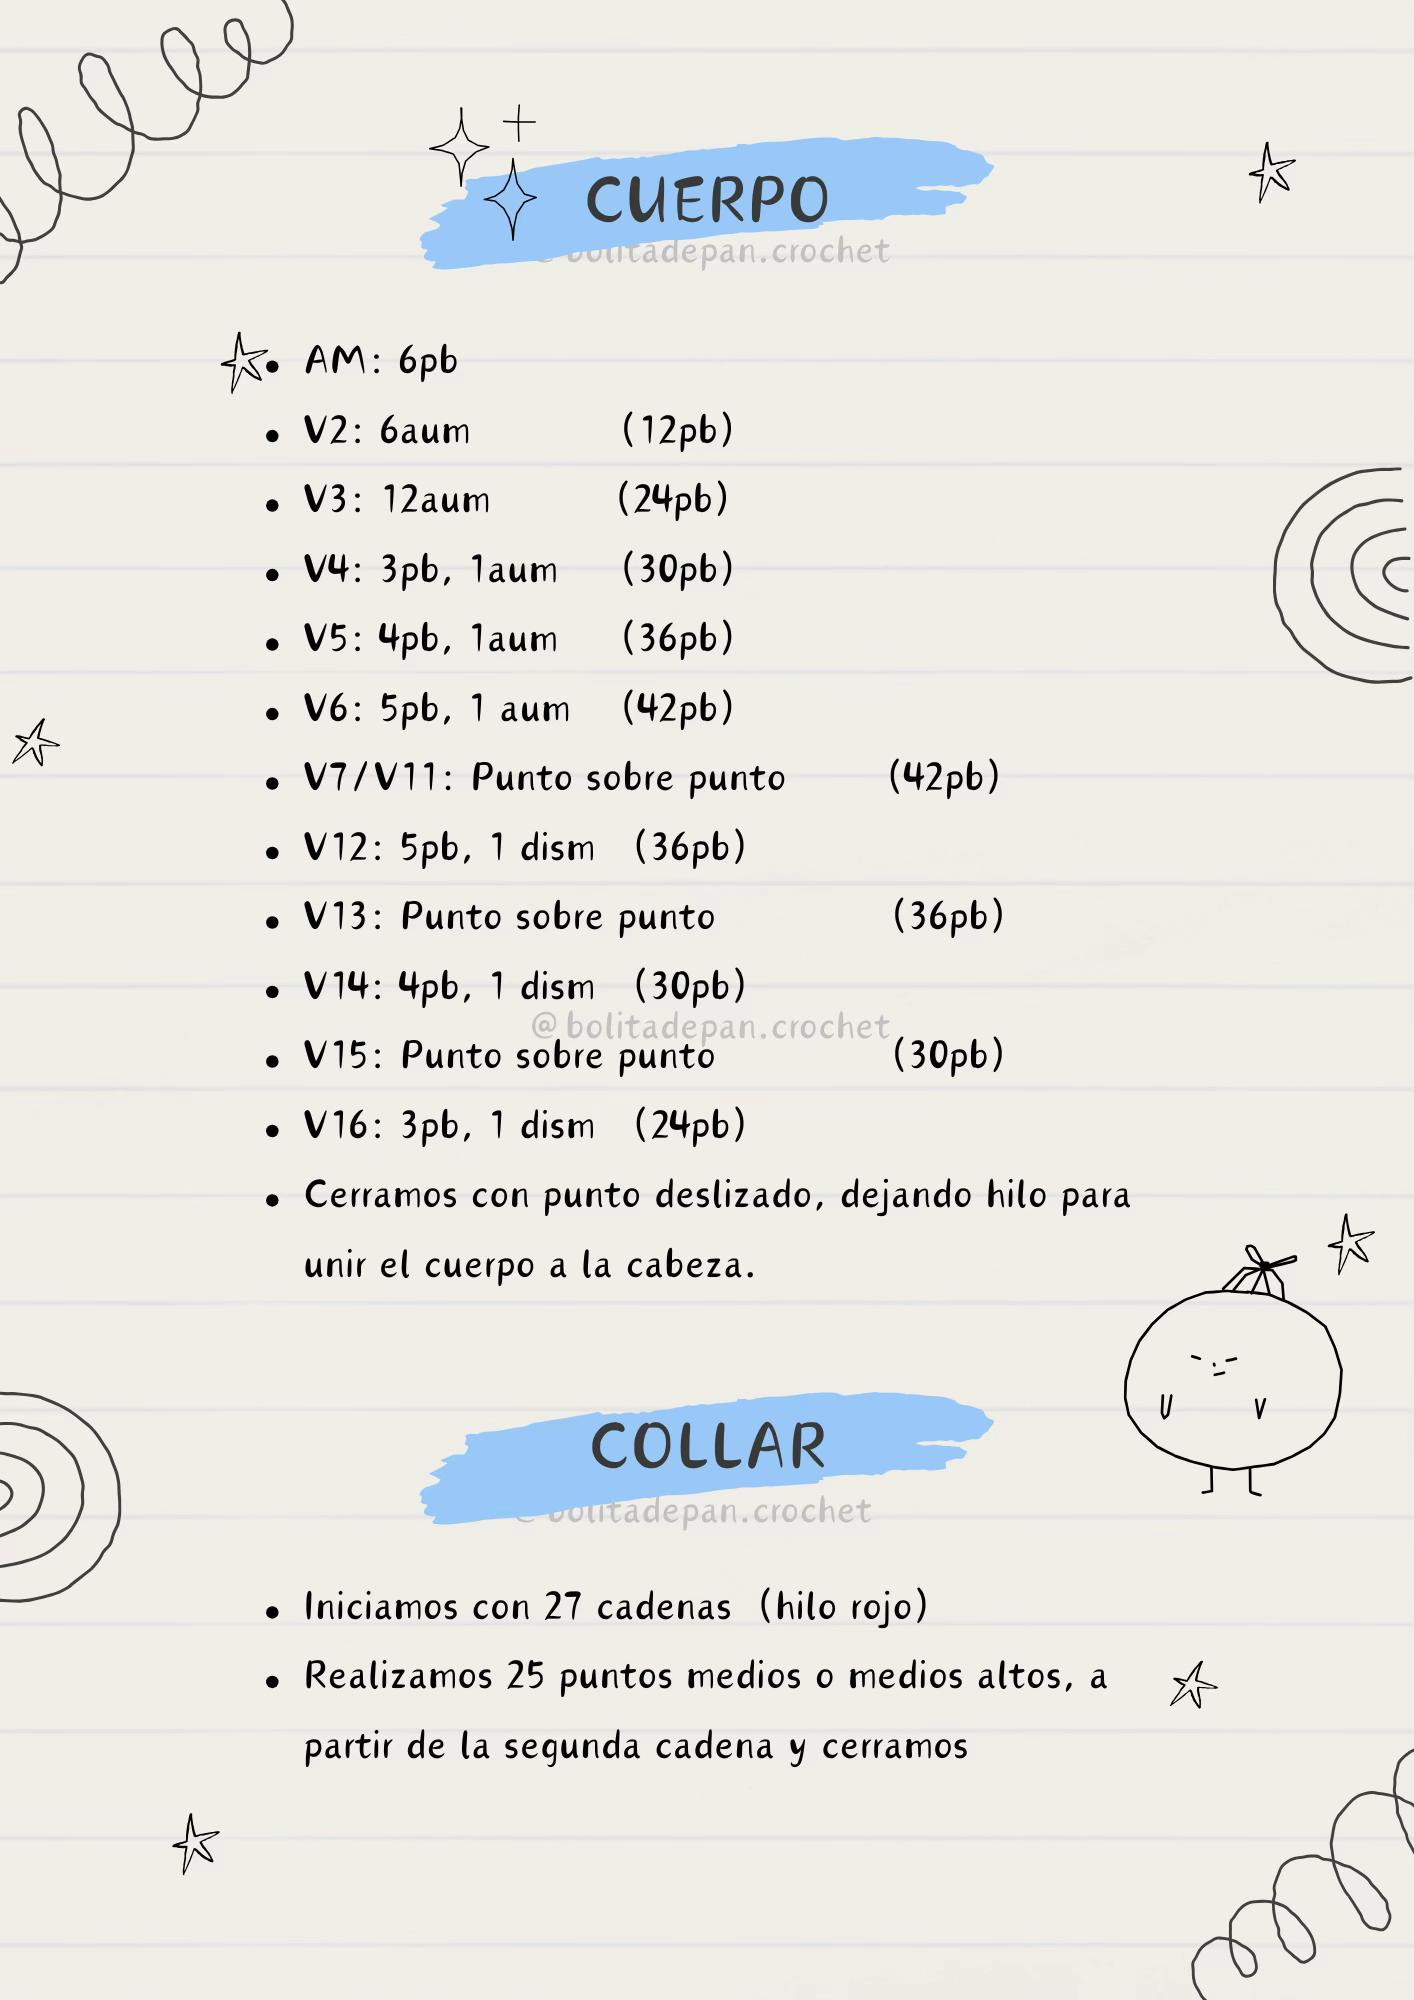 CUERPO
@bolitadepan.crochet
• AM: 6pb
• V2: 6aum (12pb)
• V3: 12aum (24pb)
• V4: 3pb, 1aum (30pb)
• V5: 4pb, 1aum (36pb)
• V6: 5pb, 1 aum (42pb)
• V7/V11: Punto sobre punto (42pb)
• V12: 5pb, 1 dism (36pb)
• V13: Punto sobre punto (36pb)
• V14: 4pb, 1 dism (30pb)
@bolitadepan.crochet
• V15: Punto sobre punto (30pb)
• V16: 3pb, 1 dism (24pb)
• Cerramos con punto deslizado, dejando hilo para
unir el cuerpo a la cabeza.
COLLAR
@bolitadepan.crochet
• Iniciamos con 27 cadenas (hilo rojo)
• Realizamos 25 puntos medios o medios altos, a
partir de la segunda cadena y cerramos